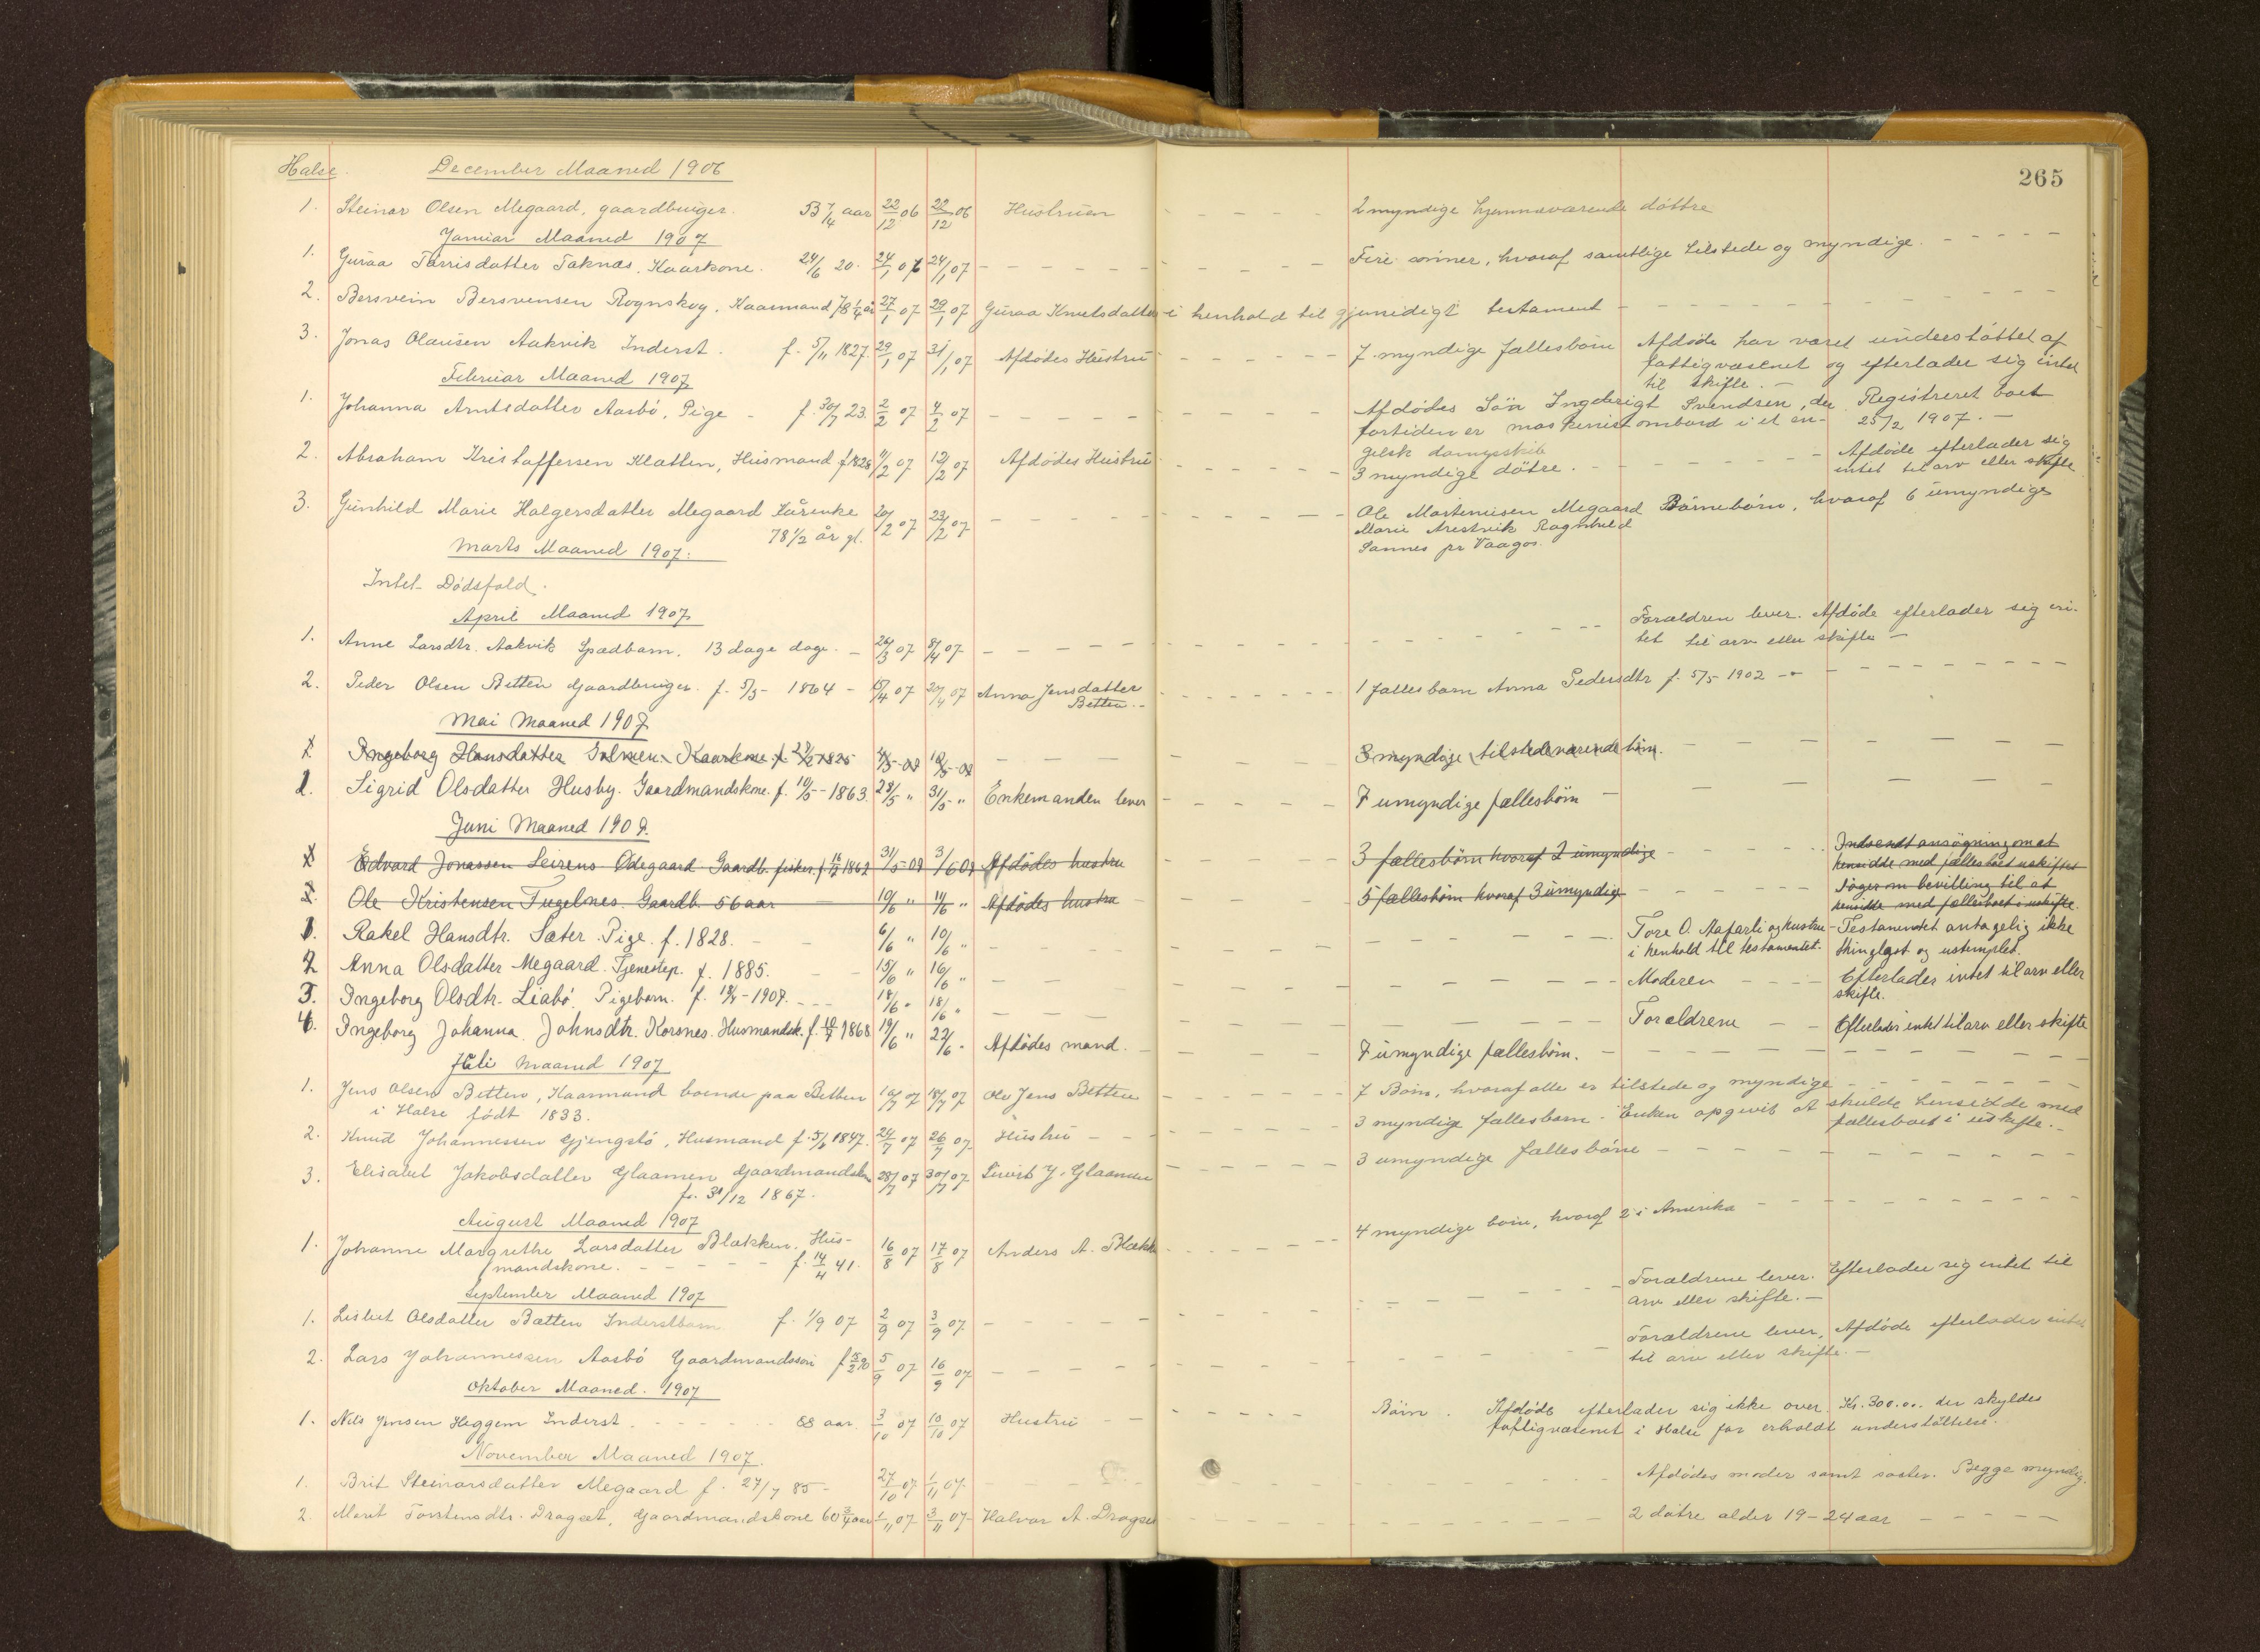 265
Halse. December Maaned 1906
1. Steinar Olsen Megaard, gaardbruger. 53 3/4 aar 22/12 06 22/12 06 Hustruen - - - - 2 myndige hjemmeværende döttre
Januar Maaned 1907
1. Guraa Tarrisdatter Taknæs, Kaarkone. 24/6 20. 24/1 07 24/1 07 - - - - Fire sönner, hvoraf samtlige tilstede og myndige. - - - -
2. Bersvein Bersvensen Rognskog, Kaarmand 78 1/4 år 27/1 07 29/1 07 Guraa Knutsdatter i henhold til gjensidigt testament - - - -
3. Jonas Olausen Aakvik Inderst. f. 5/11 1827. 29/1 07 31/1 07 Afdødes Hustru - - - - 7 myndige fællesbörn Afdöde har været understöttet af
fattigvæsenet og efterlader sig intet
til skifte. -
Februar Maaned 1907
1. Johanna Arntsdatter Aasbö, Pige - f. 30/7 23. 2/2 07 4/2 07 - - - - Afdødes Sön Ingebrigt Svendsen, der Registreret boet
fortiden er maskinist ombord i et en- 25/2 1907. -
gelsk dampskib
2. Abraham Kristoffersen Klætten, Husmand f 1828 9/2 07 12/2 07 Afdødes Hustru - - - - 3 myndige dötre. - - - - Afdöde efterlader sig
intet til arv eller skifte
3. Gunhild Marie Halgersdatter Megaard Kårenke 20/2 07 23/2 07 - - - - Ole Martinusen Megaard Börnebörn, hvoraf 6 umyndige
78 1/2 år gl. Marie Arestvik Ragnhild
Sannes pr Vaagos.
Marts Maaned 1907.
Intet Dödsfald.
April Maaned 1907
1. Anne Larsdtr. Aakvik Spædbarn, 13 dage dage. - 26/3 07 8/4 07 - - - - Forældren lever. Afdöde efterlader sig in-
tet til arv eller skifte -
2. Peder Olsen Betten Gaardbruger. f. 5/3 - 1864 - 15/4 07 20/4 07 Anna Jensdatter - - - - 1 fælles barn Anna Pedersdtr f. 5/5 - 1902 - - - -
Betten. -
Mai Maaned 1907
1. Ingeborg Hansdatter Kaarkone f. 1825 - - - - 3 myndige tilstedeværende börn. - - - -
1. Sigrid Olsdatter Husby. Gaardmandskone. f. 10/5 - 1863. 28/5 " 31/5 " Enkemanden lever - - - - 7 umyndige fællesbörn - - - -
Juni Maaned 1907.
Edvard Jonassen Leirens Ödegaard Gaardb. fisker. f 16/12 1862 31/5 - 07 3/6 07 Afdødes hustru - - - - 3 fællesbörn hvoraf 2 umyndige - - - - Indsendt ansögning om at
hensidde med fællesboet uskiftet
2. Ole Kristensen Fugelnes. Gaardb. 56 aar 10/6 " 11/6 " Afdødes hustru - - - - 5 fællesbörn hvoraf 3 umyndige - - - - Söger om bevilling til at
hensidde med fællesboet i uskifte.
1. Rakel Hansdtr. Sæter. Pige. f. 1828. - - 6/6 " 10/6 " - - - - Tore O. Aafarli og hustru - Testamentet antagelig ikke
i henhold til testamentet. thinglyst og ustemplet.
2 Anna Olsdatter Megaard. Tjenestep. f. 1885. - - 15/6 " 16/6 " - - - - Moderen - - - Efterlader intet til arv eller
skifte.
3. Ingeborg Olsdtr. Liabö. Pigebarn. f. - 1907. - - - 18/6 " 18/6 " - - - - Forældrene - - Efterlader intet til arv eller skifte
4. Ingeborg Johanna Johnsdtr. Korsnes. Husmandsk. f. 10/7 1868 19/6 " 22/6 " Afdødes mand. - - - - 7 umyndige fællesbörn. - - - -
Juli Maaned 1907
1. Jens Olsen Betten, Kaarmand boende paa Betten 10/7 07 18/7 07 Ole Jens Betten - - - - 7 Börn, hvoraf alle er tilstede og myndige - - - -
i Halse födt 1833.
2. Knud Johannessen Gjengstö, Husmand f. 5/6 1847. 24/7 07 26/7 07 Hustru - - - - 3 myndige fællesbørn. Enken opgivet at skulde hensidde med
fællesboet i uskifte. -
3. Elisabet Jakobsdatter Glaamen Gaardmandskone 28/7 07 30/7 07 Sivert J. Glaamen - - - - 3 umyndige fællesbörn - - - -
f. 31/12 1867.
August Maaned 1907
1. Johanne Margrethe Larsdatter Blekken. Hus- 16/8 07 17/8 07 Anders A. Blekken - - - - 4 myndige börn, hvoraf 2 i Amerika - - - -
mandskone. - - - - f. 14/4 41.
September Maaned 1907
1. Lisbet Olsdatter Bætten Inderstbarn f. 1/9 07 2/9 07 3/9 07 - - - - Forældrene lever. Efterlader sig intet til
arv eller skifte. -
2. Lars Johannessen Aasbö Gaardmandssön f 15/2 90 5/9 07 16/9 07 - - - - Forældrene lever, Afdöde efterlader intet
til arv eller skifte. -
Oktober Maaned. 1907
1. Nils Jensen Heggem Inderst. - - - - 88 aar. 3/10 07 10/10 07 Hustru - - - - Börn. Afdöde efterlader sig ikke over Kr. 300.00. der skyldes
fattigvæsenet i Halse for erholdt understöttelse.
November Maaned 1907.
1. Brit Steinarsdatter Megaard f. 27/7 85 - 27/10 07 1/11 07. - - - - Afdødes moder samt söster. Begge myndig.
2. Marit Torstensdtr. Dragset, Gaardmandskone 60 3/4 aar 1/11 07 3/11 07 Halvor A. Dragset - - - - 2 dötre alder 19 - 24 aar - - - -